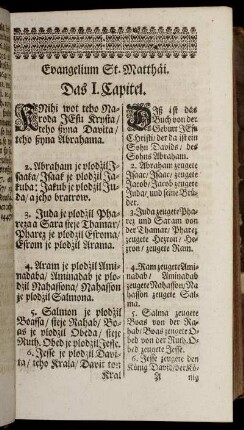 Evangelium St. Matthäi.
Das I. Capitel.
KNihi wot teho Na-
roda JEsu Krysta/
teho syna Davita/
teho syna Abrahama.
2. Abraham je plodžil J-
saaka/ Isaak je plodžil Ja-
kuba: Jakub je plodžil Ju-
da/ a jeho bratrow.
3. Juda je plodžil Pha-
reza a Sara steje Thamar/
Pharez je plodžil Esroma/
Esrom je plodžil Arama.
4. Aram je plodžil Ami-
nadaba/ Aminadab je plo-
džil Nahassona/ Nahasson
je plodžil Salmona.
5. Salmon je plodžil
Boassa/ steje Rahab/ Bo-
as je plodžil Obeda/ steje
Ruth. Obed je plodžil Jesse.
6. Jesse je plodžil Davi-
ta/ teho Krala/ Davit ton
Kral
DIß ist das
Buch von der
Geburt JEsu
Christi/ der da ist ein
Sohn Davids/ des
Sohns Abraham.
2. Abraham zeugete
Isaac/ Isaac zeugete
Jacob/ Jacob zeugete
Juda/ und seine Brü-
der.
3. Juda zeugete Pha-
rez und Saram von
der Thamar/ Pharez
zeugete Hezron/ Hez-
ron/ zeugete Ram.
4. Ram zeugete Ami-
nadab/ Aminadab
zeugete Nahasson/ Na-
hasson zeugete Sal-
ma.
5. Salma zeugete
Boas von der Ra-
hab/ Boas zeugete O-
bed von der Ruth. O-
bed zeugete Jesse.
6. Jesse zeugete den
König David/ der Kö-
nig